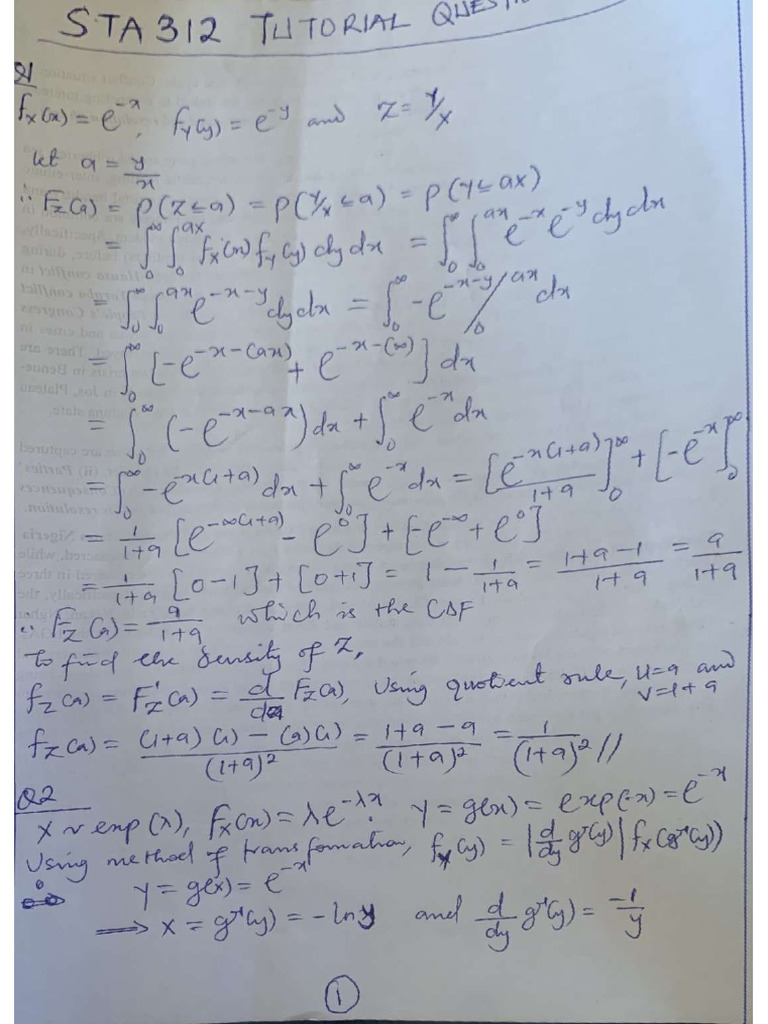 STA 312 TUTORIAL QUEST
Q1
fx(x) = e^-x, fy(y) = e^-y and Z = Y/X
let a = y/x
∴ Fz(a) = P(Z ≤ a) = P(Y/X ≤ a) = P(Y ≤ ax)
= ∫₀^∞ ∫₀^ax fx(x) fy(y) dy dx = ∫₀^∞ ∫₀^ax e^-x e^-y dy dx
= ∫₀^∞ ∫₀^ax e^-x-y dy dx = ∫₀^∞ -e^-x-y /₀^ax dx
= ∫₀^∞ [-e^-x-(ax) + e^-x-(0)] dx
= ∫₀^∞ (-e^-x-ax) dx + ∫₀^∞ e^-x dx
= ∫₀^∞ -e^-x(1+a) dx + ∫₀^∞ e^-x dx = [e^-x(1+a) / 1+a]₀^∞ + [-e^-x]₀^∞
= 1/1+a [e^-∞(1+a) - e^0] + [-e^-∞ + e^0]
= 1/1+a [0-1] + [0+1] = 1 - 1/1+a = 1+a-1/1+a = a/1+a
∴ Fz(a) = a/1+a which is the CDF
To find the density of Z,
fz(a) = F'z(a) = d/da Fz(a), Using quotient rule, u=a and v=1+a
fz(a) = (1+a)(1) - (a)(1) / (1+a)² = 1+a-a / (1+a)² = 1/(1+a)² //
Q2
X ~ exp(λ), fx(x) = λe^-λx. Y = g(x) = exp(-x) = e^-x
Using method of transformation, fy(y) = |d/dy g⁻¹(y)| fx(g⁻¹(y))
Y = g(x) = e^-x
⟹ X = g⁻¹(y) = -ln y and d/dy g⁻¹(y) = -1/y
1